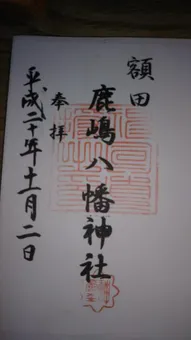 額田
鹿嶋八幡神社
奉拝
平成二十年十一月二日